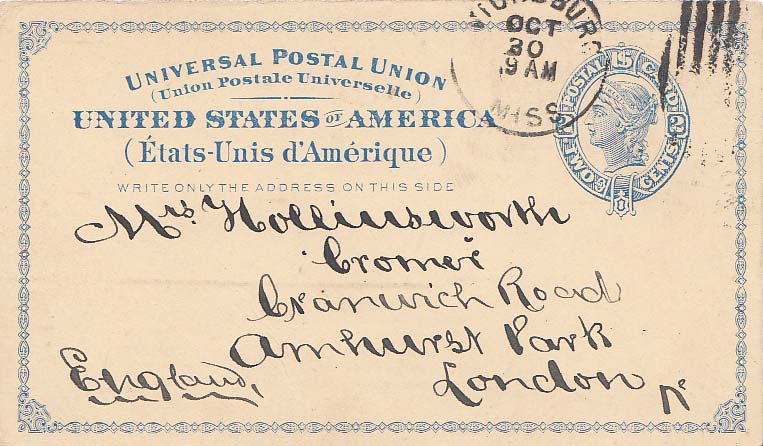 UNIVERSAL POSTAL UNION
(Union Postale Universelle)
UNITED STATES OF AMERICA
(États-Unis d'Amérique)
WRITE ONLY THE ADDRESS ON THIS SIDE
VICKSBURG
OCT
30
9 AM
MISS
U.S. POSTAL CARD
2 TWO CENTS 2
Mrs Hollinsworth
Cromer
Cranwich Road
Amhurst Park
London N.
England,